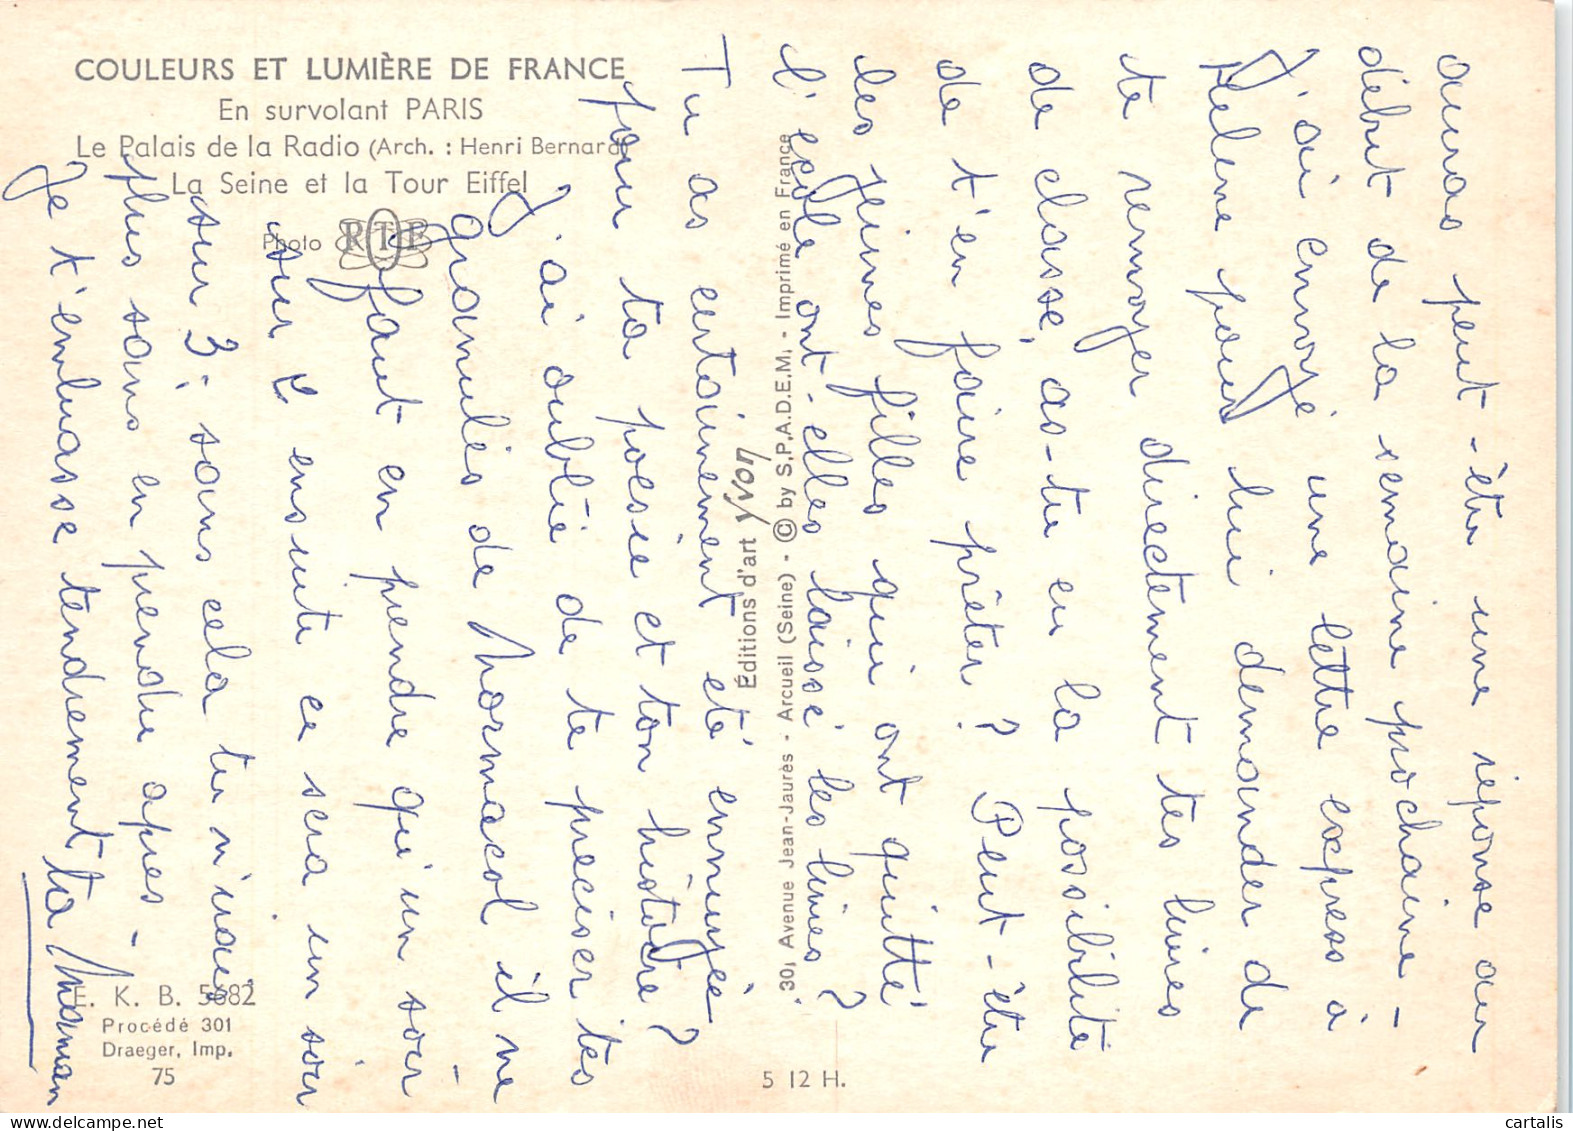 COULEURS ET LUMIÈRE DE FRANCE
En survolant PARIS
Le Palais de la Radio (Arch. : Henri Bernard)
La Seine et la Tour Eiffel
Photo RTF
E. K. B. 5682
Procédé 301
Draeger, Imp.
75
5 12 H.
Éditions d'art yvon
30, Avenue Jean-Jaurès - Arcueil (Seine) - © by S.P.A.D.E.M. - Imprimé en France
auras peut-être une réponse au
début de la semaine prochaine -
J'ai envoyé une lettre express à
Helene pour lui demander de
te renvoyer directement tes livres
de classe, as-tu eu la possibilité
de t'en faire prêter ? Peut-être
les jeunes filles qui ont quitté
l'école ont-elles laissé les livres ?
Tu as certainement été ennuyée
pour ta poésie et ton histoire ?
J'ai oublié de te préciser tes
granulés de Normacol il ne
faut en prendre qu'un soir
sur 2 ensuite ce sera un soir
sur 3, sans cela tu n'irais
plus sans en prendre après -
Je t'embrasse tendrement ta Maman